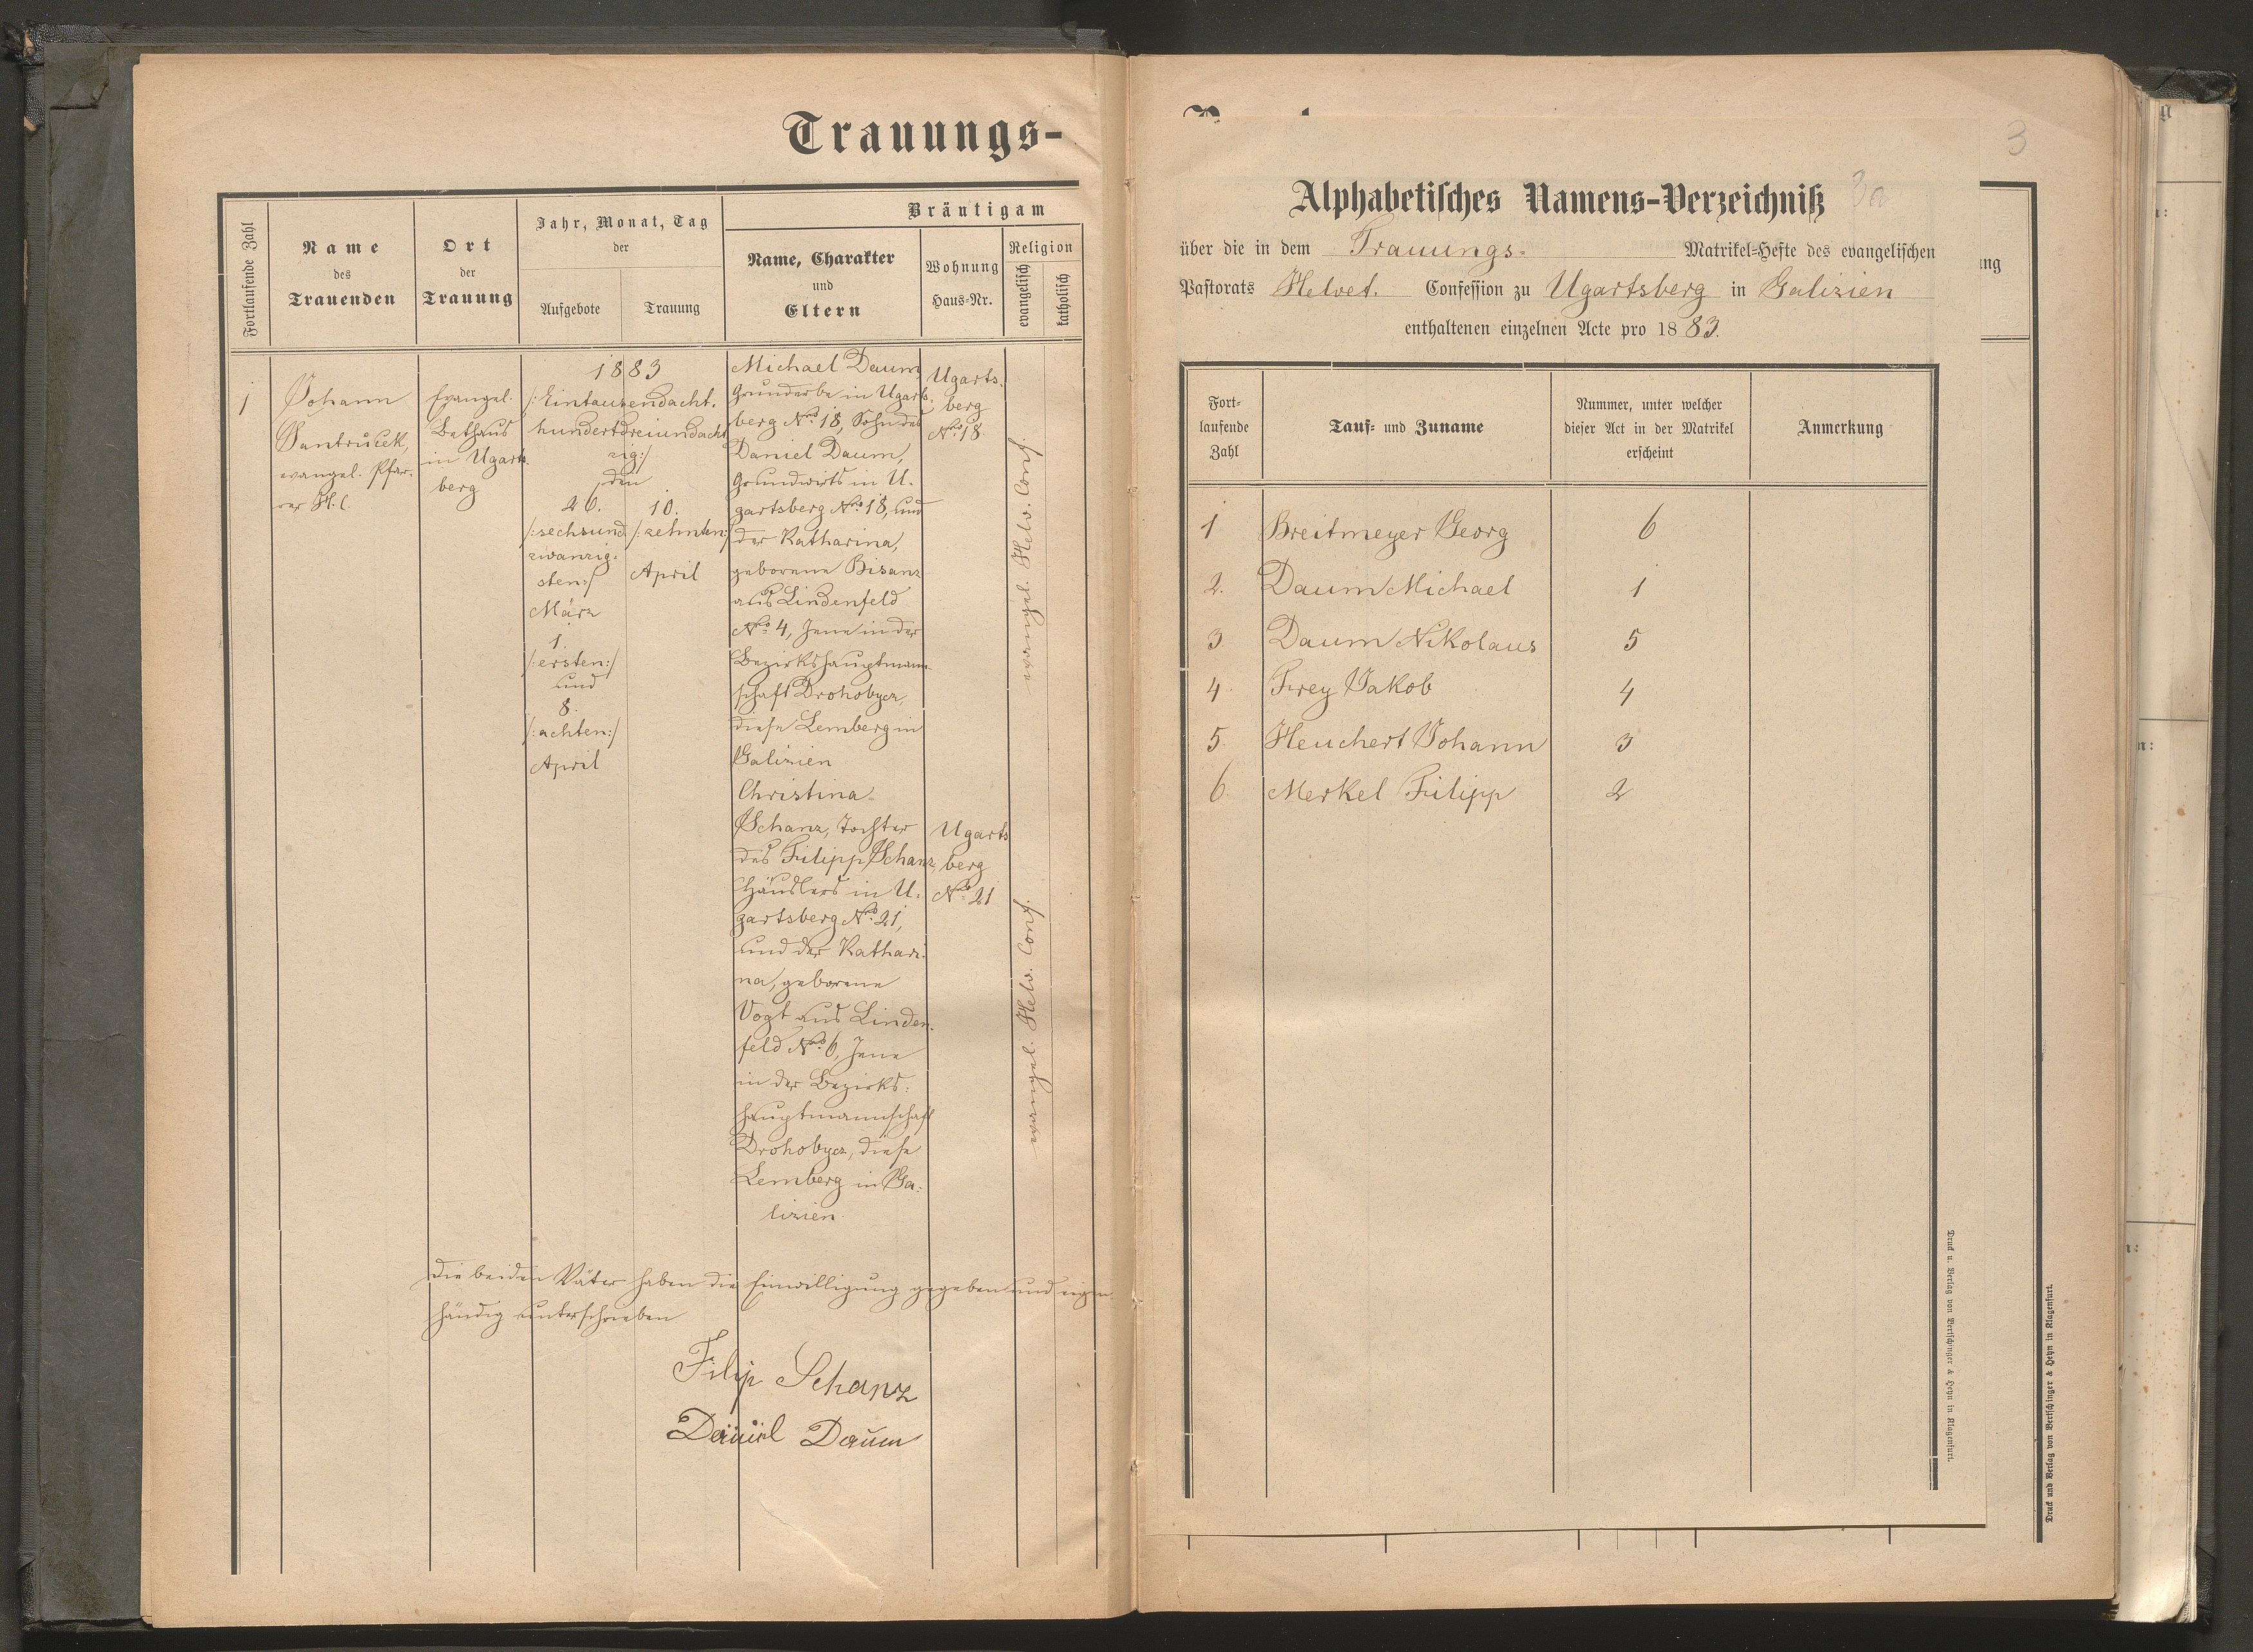 Trauungs-
Fortlaufende Zahl
Name
des
Trauenden
Ort
der
Trauung
Jahr, Monat, Tag
der
Aufgebote
Trauung
Bräutigam
Name, Charakter
und
Eltern
Wohnung
Haus-Nr.
Religion
evangelisch
katholisch
1
Johann
Santrucek,
evangel. Pfar-
rer H. C.
Evangel.
Bethaus
in Ugarts-
berg
1883
/:Eintausendacht-
hundertdreiundacht
zig:/
den
26.
/:sechsund
zwanzig-
sten:/
März
1.
/:ersten:/
und
8.
/:achten:/
April
10.
/:zehnten:/
April
Michael Daum
Grunderbe in Ugarts-
berg Nro 18, Sohn des
Daniel Daum,
Grundwirts in U-
gartsberg Nro 18, und
der Katharina,
geborene Bisanz
aus Lindenfeld
Nro 4, Jene in der
Bezirkshauptmann-
schaft Drohobycz,
diese Lemberg in
Galizien
Ugarts-
berg
Nro 18
evangel. Helv. Conf.
Christina
Schanz, Tochter
des Filipp Schanz,
Häuslers in U-
gartsberg Nro 21,
und der Kathari-
na, geborene
Vogt aus Linden-
feld Nro 6, Jene
in der Bezirks-
hauptmannschaft
Drohobycz, diese
Lemberg in Ga-
lizien
Ugarts
berg
Nro 21
evangel. Helv. Conf.
Die beiden Väter haben die Einwilligung gegeben und eigen-
händig unterschrieben
Filip Schanz
Daniel Daum
3
Alphabetisches Namens-Verzeichniß
3a
über die in dem Trauungs- Matrikel-Hefte des evangelischen
Pastorats Helvet. Confession zu Ugartsberg in Galizien
enthaltenen einzelnen Acte pro 1883.
ung
Fort-
laufende
Zahl
Tauf- und Zuname
Nummer, unter welcher
dieser Act in der Matrikel
erscheint
Anmerkung
1 Breitmeyer Georg 6
2. Daum Michael 1
3 Daum Nikolaus 5
4. Frey Jakob 4
5. Heuchert Johann 3
6. Merkel Filipp 2
Druck u. Verlag von Bertschinger & Heyn in Klagenfurt.
Druck und Verlag von Bertschinger & Heyn in Klagenfurt.